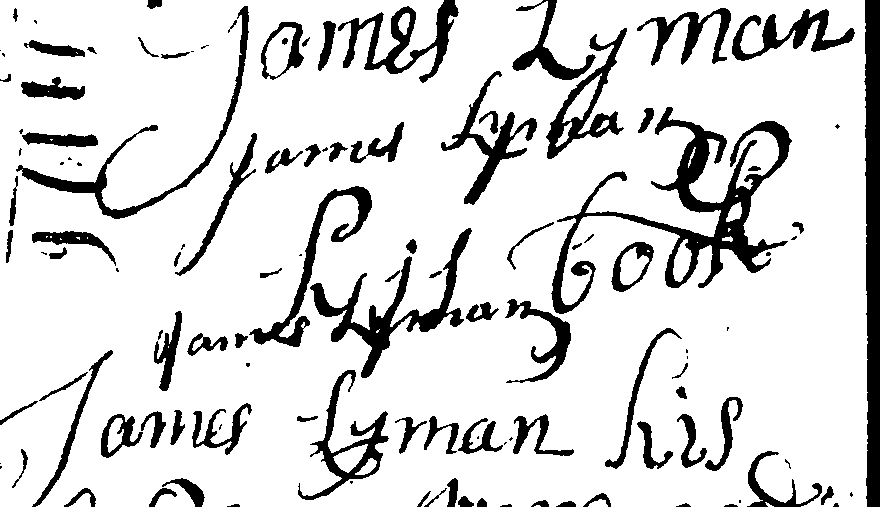 James Lyman
James Lyman
his book
James Lyman
James Lyman his